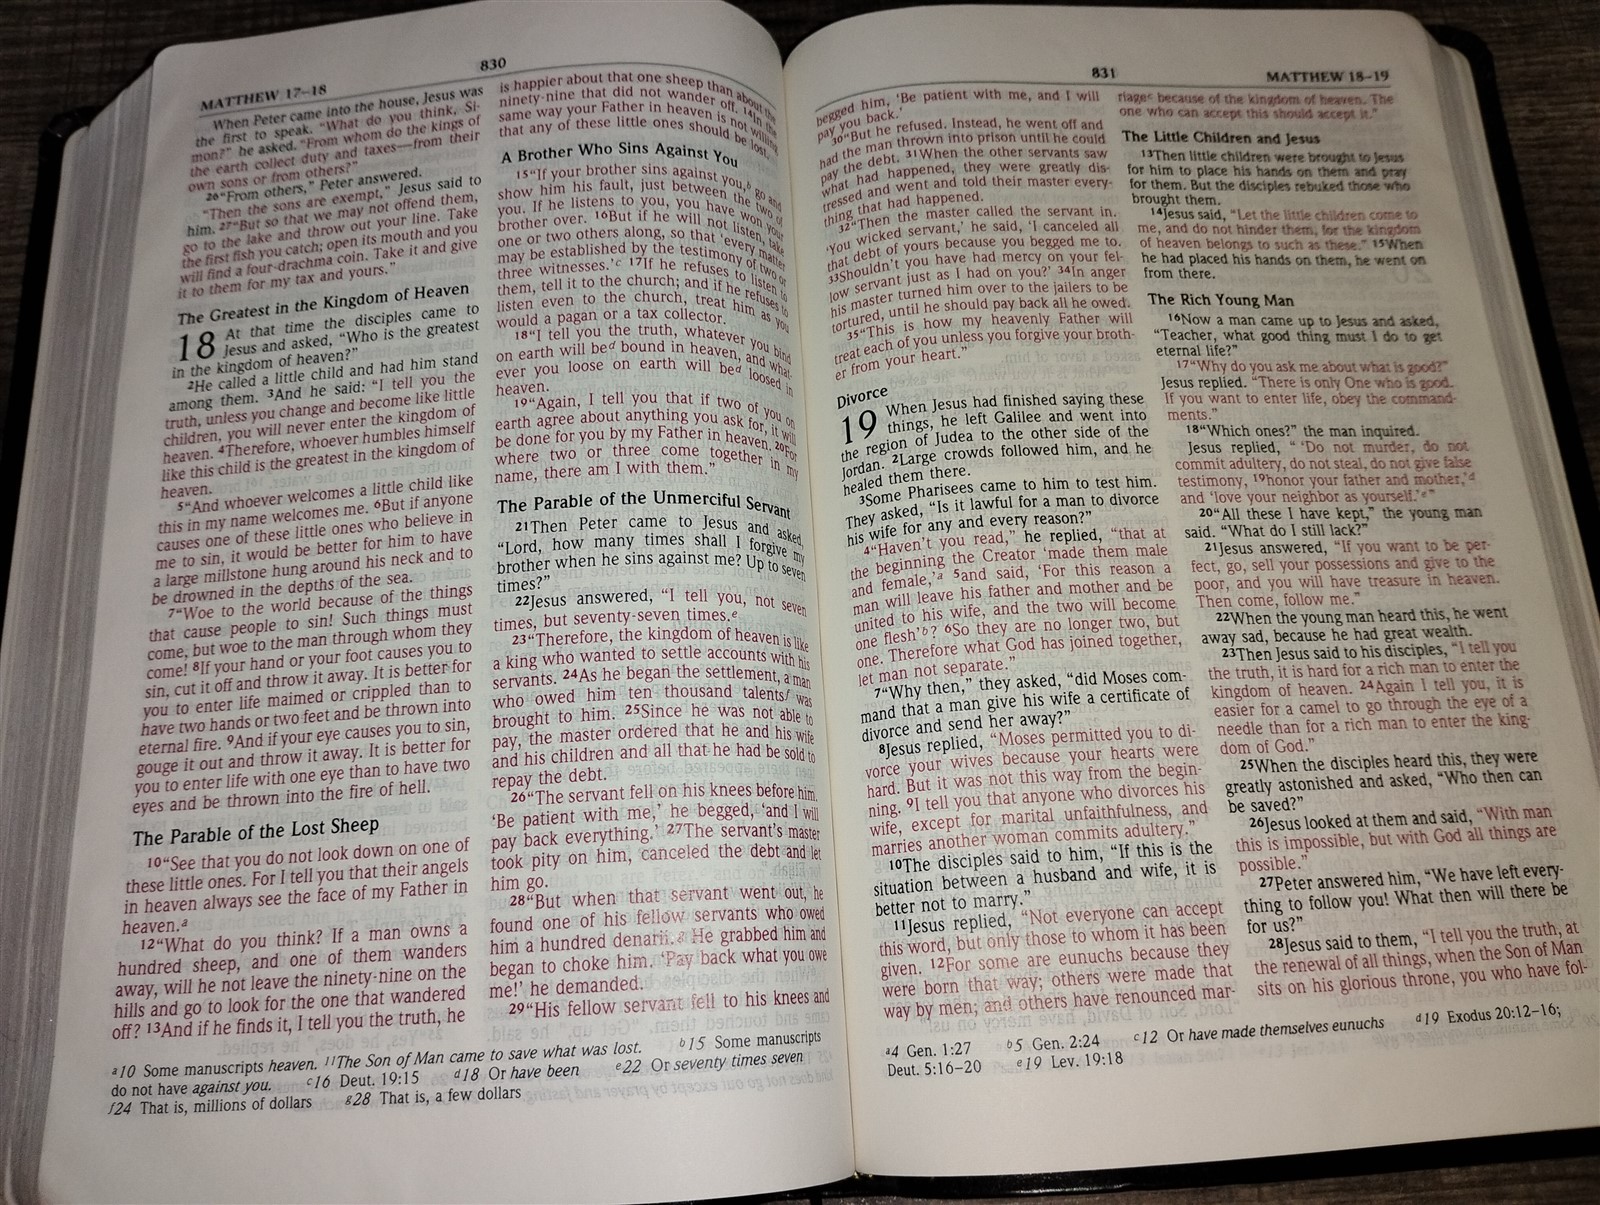 830
MATTHEW 17–18
When Peter came into the house, Jesus was
the first to speak. “What do you think, Si-
mon?” he asked. “From whom do the kings of
the earth collect duty and taxes—from their
own sons or from others?”
26“From others,” Peter answered.
“Then the sons are exempt,” Jesus said to
him. 27“But so that we may not offend them,
go to the lake and throw out your line. Take
the first fish you catch; open its mouth and you
will find a four-drachma coin. Take it and give
it to them for my tax and yours.”
The Greatest in the Kingdom of Heaven
18 At that time the disciples came to
Jesus and asked, “Who is the greatest
in the kingdom of heaven?”
2He called a little child and had him stand
among them. 3And he said: “I tell you the
truth, unless you change and become like little
children, you will never enter the kingdom of
heaven. 4Therefore, whoever humbles himself
like this child is the greatest in the kingdom of
heaven.
5“And whoever welcomes a little child like
this in my name welcomes me. 6But if anyone
causes one of these little ones who believe in
me to sin, it would be better for him to have
a large millstone hung around his neck and to
be drowned in the depths of the sea.
7“Woe to the world because of the things
that cause people to sin! Such things must
come, but woe to the man through whom they
come! 8If your hand or your foot causes you to
sin, cut it off and throw it away. It is better for
you to enter life maimed or crippled than to
have two hands or two feet and be thrown into
eternal fire. 9And if your eye causes you to sin,
gouge it out and throw it away. It is better for
you to enter life with one eye than to have two
eyes and be thrown into the fire of hell.
The Parable of the Lost Sheep
10“See that you do not look down on one of
these little ones. For I tell you that their angels
in heaven always see the face of my Father in
heaven.a
12“What do you think? If a man owns a
hundred sheep, and one of them wanders
away, will he not leave the ninety-nine on the
hills and go to look for the one that wandered
off? 13And if he finds it, I tell you the truth, he
is happier about that one sheep than about the
ninety-nine that did not wander off. 14In the
same way your Father in heaven is not willing
that any of these little ones should be lost.
A Brother Who Sins Against You
15“If your brother sins against you,b go and
show him his fault, just between the two of
you. If he listens to you, you have won your
brother over. 16But if he will not listen, take
one or two others along, so that ‘every matter
may be established by the testimony of two or
three witnesses.’c 17If he refuses to listen to
them, tell it to the church; and if he refuses to
listen even to the church, treat him as you
would a pagan or a tax collector.
18“I tell you the truth, whatever you bind
on earth will bed bound in heaven, and what-
ever you loose on earth will bed loosed in
heaven.
19“Again, I tell you that if two of you on
earth agree about anything you ask for, it will
be done for you by my Father in heaven. 20For
where two or three come together in my
name, there am I with them.”
The Parable of the Unmerciful Servant
21Then Peter came to Jesus and asked,
“Lord, how many times shall I forgive my
brother when he sins against me? Up to seven
times?”
22Jesus answered, “I tell you, not seven
times, but seventy-seven times.e
23“Therefore, the kingdom of heaven is like
a king who wanted to settle accounts with his
servants. 24As he began the settlement, a man
who owed him ten thousand talentsf was
brought to him. 25Since he was not able to
pay, the master ordered that he and his wife
and his children and all that he had be sold to
repay the debt.
26“The servant fell on his knees before him.
‘Be patient with me,’ he begged, ‘and I will
pay back everything.’ 27The servant’s master
took pity on him, canceled the debt and let
him go.
28“But when that servant went out, he
found one of his fellow servants who owed
him a hundred denarii.g He grabbed him and
began to choke him. ‘Pay back what you owe
me!’ he demanded.
29“His fellow servant fell to his knees and
a10 Some manuscripts heaven. 11The Son of Man came to save what was lost. b15 Some manuscripts
do not have against you. c16 Deut. 19:15 d18 Or have been e22 Or seventy times seven
f24 That is, millions of dollars g28 That is, a few dollars
831
MATTHEW 18–19
begged him, ‘Be patient with me, and I will
pay you back.’
30“But he refused. Instead, he went off and
had the man thrown into prison until he could
pay the debt. 31When the other servants saw
what had happened, they were greatly dis-
tressed and went and told their master every-
thing that had happened.
32“Then the master called the servant in.
‘You wicked servant,’ he said, ‘I canceled all
that debt of yours because you begged me to.
33Shouldn’t you have had mercy on your fel-
low servant just as I had on you?’ 34In anger
his master turned him over to the jailers to be
tortured, until he should pay back all he owed.
35“This is how my heavenly Father will
treat each of you unless you forgive your broth-
er from your heart.”
Divorce
19 When Jesus had finished saying these
things, he left Galilee and went into
the region of Judea to the other side of the
Jordan. 2Large crowds followed him, and he
healed them there.
3Some Pharisees came to him to test him.
They asked, “Is it lawful for a man to divorce
his wife for any and every reason?”
4“Haven’t you read,” he replied, “that at
the beginning the Creator ‘made them male
and female,’a 5and said, ‘For this reason a
man will leave his father and mother and be
united to his wife, and the two will become
one flesh’b? 6So they are no longer two, but
one. Therefore what God has joined together,
let man not separate.”
7“Why then,” they asked, “did Moses com-
mand that a man give his wife a certificate of
divorce and send her away?”
8Jesus replied, “Moses permitted you to di-
vorce your wives because your hearts were
hard. But it was not this way from the begin-
ning. 9I tell you that anyone who divorces his
wife, except for marital unfaithfulness, and
marries another woman commits adultery.”
10The disciples said to him, “If this is the
situation between a husband and wife, it is
better not to marry.”
11Jesus replied, “Not everyone can accept
this word, but only those to whom it has been
given. 12For some are eunuchs because they
were born that way; others were made that
way by men; and others have renounced mar-
riagec because of the kingdom of heaven. The
one who can accept this should accept it.”
The Little Children and Jesus
13Then little children were brought to Jesus
for him to place his hands on them and pray
for them. But the disciples rebuked those who
brought them.
14Jesus said, “Let the little children come to
me, and do not hinder them, for the kingdom
of heaven belongs to such as these.” 15When
he had placed his hands on them, he went on
from there.
The Rich Young Man
16Now a man came up to Jesus and asked,
“Teacher, what good thing must I do to get
eternal life?”
17“Why do you ask me about what is good?”
Jesus replied. “There is only One who is good.
If you want to enter life, obey the command-
ments.”
18“Which ones?” the man inquired.
Jesus replied, “ ‘Do not murder, do not
commit adultery, do not steal, do not give false
testimony, 19honor your father and mother,’d
and ‘love your neighbor as yourself.’e”
20“All these I have kept,” the young man
said. “What do I still lack?”
21Jesus answered, “If you want to be per-
fect, go, sell your possessions and give to the
poor, and you will have treasure in heaven.
Then come, follow me.”
22When the young man heard this, he went
away sad, because he had great wealth.
23Then Jesus said to his disciples, “I tell you
the truth, it is hard for a rich man to enter the
kingdom of heaven. 24Again I tell you, it is
easier for a camel to go through the eye of a
needle than for a rich man to enter the king-
dom of God.”
25When the disciples heard this, they were
greatly astonished and asked, “Who then can
be saved?”
26Jesus looked at them and said, “With man
this is impossible, but with God all things are
possible.”
27Peter answered him, “We have left every-
thing to follow you! What then will there be
for us?”
28Jesus said to them, “I tell you the truth, at
the renewal of all things, when the Son of Man
sits on his glorious throne, you who have fol-
a4 Gen. 1:27 b5 Gen. 2:24 c12 Or have made themselves eunuchs d19 Exodus 20:12–16;
Deut. 5:16–20 e19 Lev. 19:18